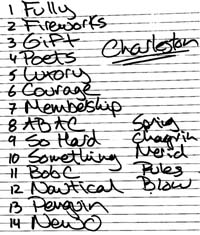 1 Fully
2 Fireworks
3 Gift
4 Poets
5 Luxory
6 Courage
7 Membeship
8 ABAC
9 So Hard
10 Something
11 Bob C
12 Nautical
13 Penguin
14 New O
Charleston
Spring
Chagrin
Merid
Rules
Blow